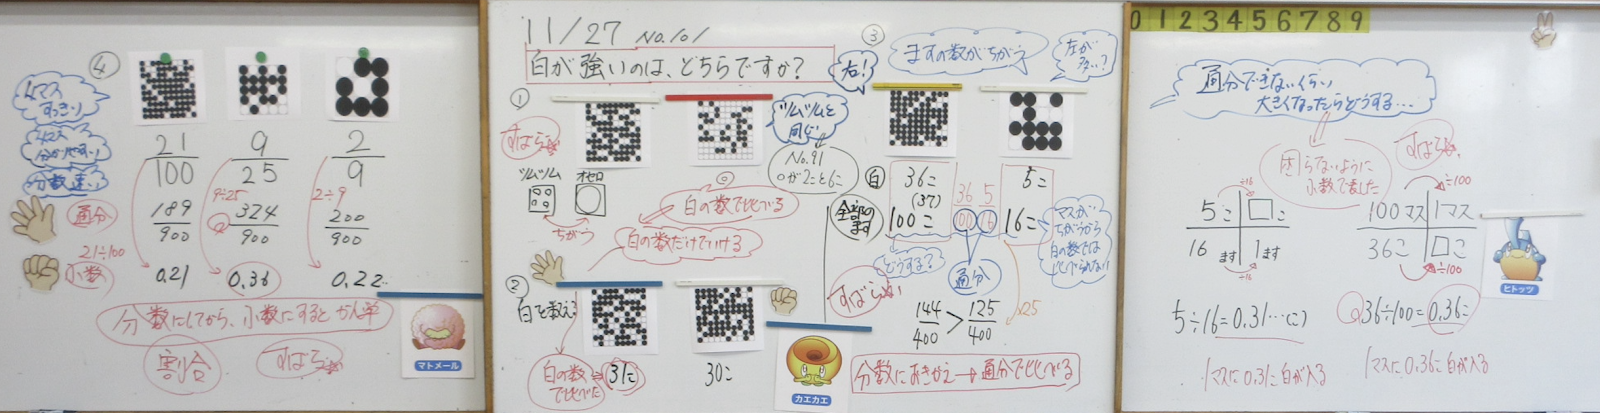 ④
4マス
すっきり
分数
21/100
9/25
2/9
9÷25
2÷9
189/900
324/900
200/900
通分
21÷100
小数
0.21
0.36
0.22…
分数にしてから、小数にするとかん単
割合
すばらしい
マトメール
11/27 No.101
白が強いのは、どちらですか？
①
すばらしい
ツムツム
オセロ
ちがう
ツムツムと
同じ
No.91
白の数で比べる
白の数だけでいける
②
白を数える
白の数
で比べた
31こ
30こ
カエカエ
③
右！
ますの数がちがう
左が
多い…？
白
36こ
(37)
5こ
全部の
ます
100こ
16こ
36 5
100 16
どうする？
通分
マスが
ちがうから
白の数では
比べられない
すばらしい
144/400 > 125/400
×25
分数におきかえ→通分で比べる
0 1 2 3 4 5 6 7 8 9
通分できないくらい
大きくなったらどうする…
困らないように
小数で表した
すばらしい
÷16
5こ □こ
16ます 1ます
÷16
÷100
100マス 1マス
36こ □こ
÷100
ヒトッツ
5÷16=0.31…(こ)
36÷100=0.36こ
1マスに0.31こ白が入る
1マスに0.36こ白が入る